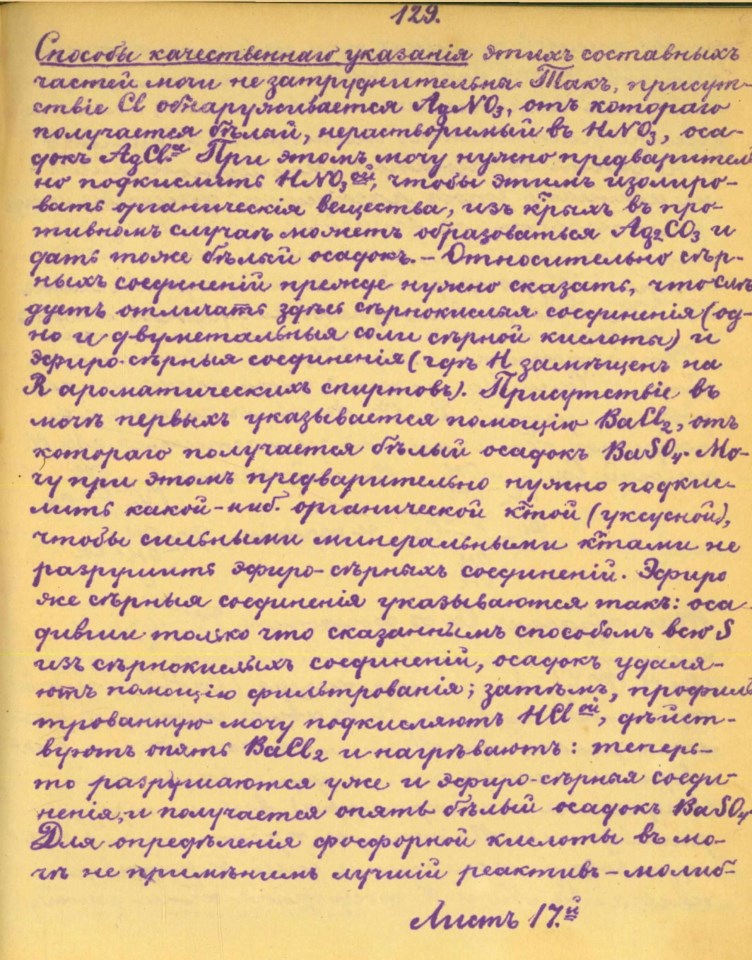 129.
Способы качественнаго указанія этихъ составныхъ
частей мочи не затруднительны. Такъ, присут-
ствіе Cl обнаруживается AgNO₃, отъ котораго
получается бѣлый, нерастворимый въ HNO₃, оса-
докъ AgCl.ᵃ При этомъ мочу нужно предварител
но подкислить HNO₃ᵒⁱ̆, чтобы этимъ изолиро-
вать органическія вещества, изъ к̅рыхъ въ про-
тивномъ случаѣ можетъ образоваться Ag₂CO₃ и
дать тоже бѣлый осадокъ. – Относительно сѣр-
ныхъ соединеній прежде нужно сказать, что слѣ
дуетъ отличать здѣсь сѣрнокислыя соединенія (од-
но и двуметальныя соли сѣрной кислоты) и
эфиро-сѣрныя соединенія (гдѣ H замѣщенъ на
R ароматическихъ спиртовъ). Присутствіе въ
мочѣ первыхъ указывается помощію BaCl₂, отъ
котораго получается бѣлый осадокъ BaSO₄. Мо-
чу при этомъ предварительно нужно подкис-
лить какой-ниб. органической к̅той (уксусной),
чтобы сильными минеральными к̅тами не
разрушить эфиро-сѣрныхъ соединеній. Эфиро
же сѣрныя соединенія указываются такъ: оса-
дивши только что сказаннымъ способомъ всю S
изъ сѣрнокислыхъ соединеній, осадокъ удаля-
ютъ помощію фильтрованія; затѣмъ, профил
трованную мочу подкисляютъ HCl ᵒй, дѣйст-
вуютъ опять BaCl₂ и нагрѣваютъ: теперь-
то разрушаются уже и эфиро-сѣрныя соеди-
ненія, и получается опять бѣлый осадокъ BaSO₄.
Для опредѣленія фосфорной кислоты въ мо-
чѣ не примѣнимъ лучшій реактивъ – молиб-
Листъ 17.й